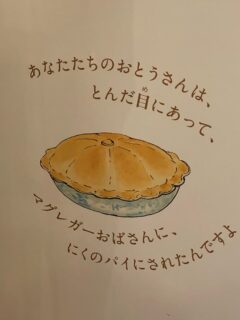 あなたたちのおとうさんは、
とんだ目にあって、
マグレガーおばさんに、
にくのパイにされたんですよ